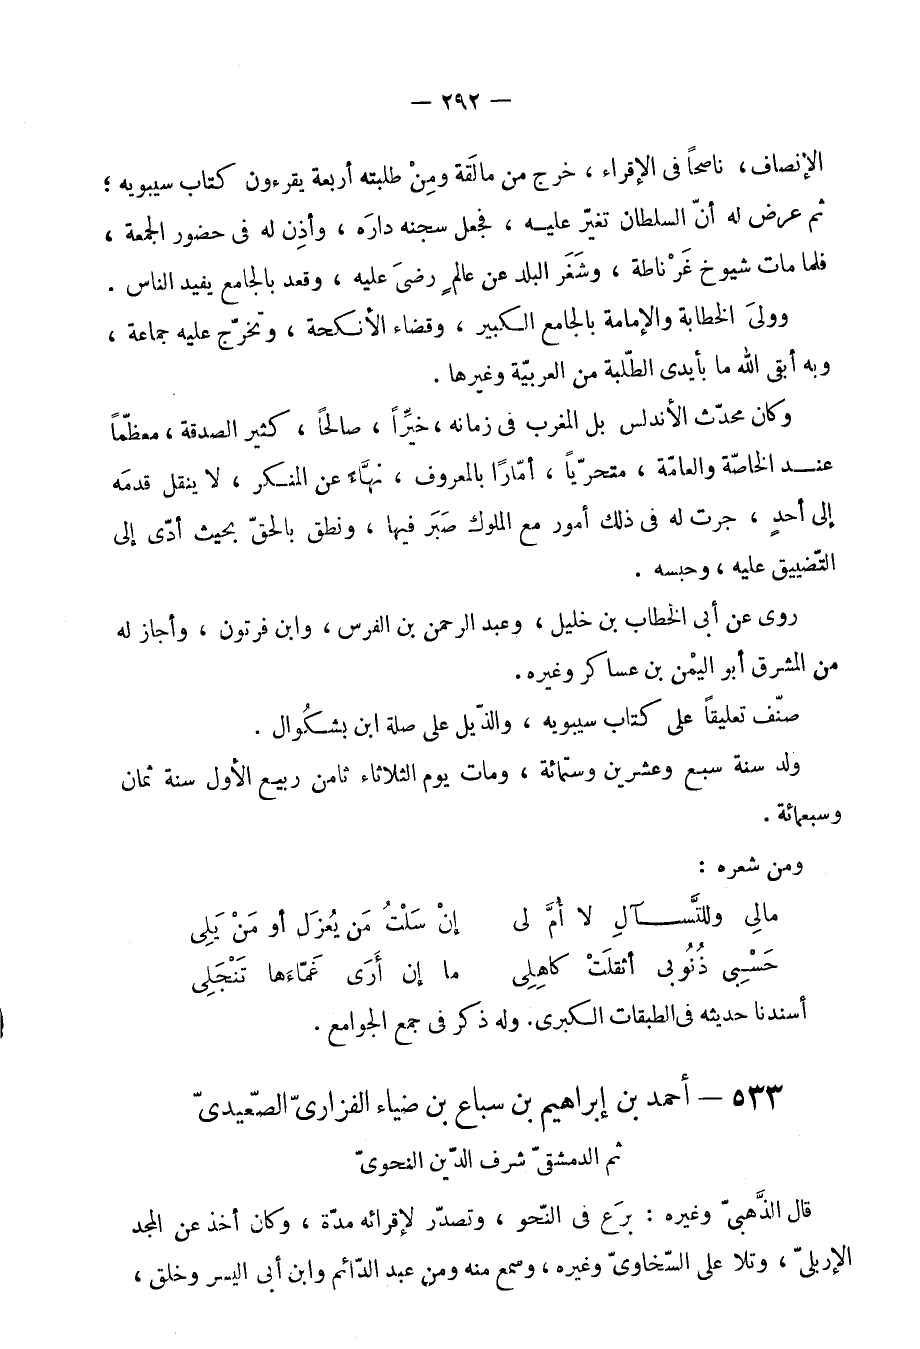 — ٢٩٢ —
الإنصاف، ناصحاً فى الإقراء ، خرج من مالَقة ومِنْ طلبته أربعة يقرءون كتاب سيبويه ؛
ثم عرض له أنّ السلطان تغيّر عليه ، فجعل سجنه دارَه ، وأذِن له فى حضور الجمعة ،
فلما مات شيوخ غَرْناطة ، وشَغَر البلد عن عالمٍ رضىَ عليه ، وقعد بالجامع يفيد الناس .
وولىَ الخطابة والإمامة بالجامع الكبير ، وقضاء الأنكحة ، وتخرّج عليه جماعة ،
وبه أبقى الله ما بأيدى الطّلبة من العربيّة وغيرها .
وكان محدّث الأندلس بل المغرب فى زمانه ، خيِّراً ، صالحاً ، كثير الصدقة ، معظّماً
عند الخاصّة والعامّة ، متحرّياً ، أمّارًا بالمعروف ، نهَّاءً عن المنكر ، لا ينقل قدمَه
إلى أحدٍ ، جرت له فى ذلك أمور مع الملوك صَبَر فيها ، ونطق بالحقّ بحيث أدّى إلى
التّضييق عليه ، وحبسه .
روى عن أبى الخطاب بن خليل ، وعبد الرحمن بن الفرس ، وابن فرتون ، وأجاز له
من المشرق أبو اليُمْن بن عساكر وغيره .
صنّف تعليقاً على كتاب سيبويه ، والذّيل على صلة ابن بشكُوال .
ولد سنة سبع وعشرين وستمائة ، ومات يوم الثلاثاء ثامن ربيع الأول سنة ثمان
وسبعمائة .
ومن شعره :
مالِى وللتَّسآلِ لا أُمَّ لى إنْ سَلْتُ مَن يُعزَل أو مَنْ يَلِى
حَسْبِى ذُنُوبى أثقلَتْ كاهِلِى ما إن أَرَى غَمّاءَها تَنْجَلِى
أسندنا حديثه فى الطبقات الكبرى . وله ذكر فى جمع الجوامع .
٥٣٣ — أحمد بن إبراهيم بن سباع بن ضياء الفزارىّ الصّعيدىّ
ثم الدمشقىّ شرف الدّين النحوىّ
قال الذَّهبىّ وغيره : برَع فى النّحو ، وتصدّر لإقرائه مدّة ، وكان أخذ عن المجد
الإربلىّ ، وتلا على السّخاوىّ وغيره ، وسمع منه ومن عبد الدّائم وابن أبى اليسر وخلق ،